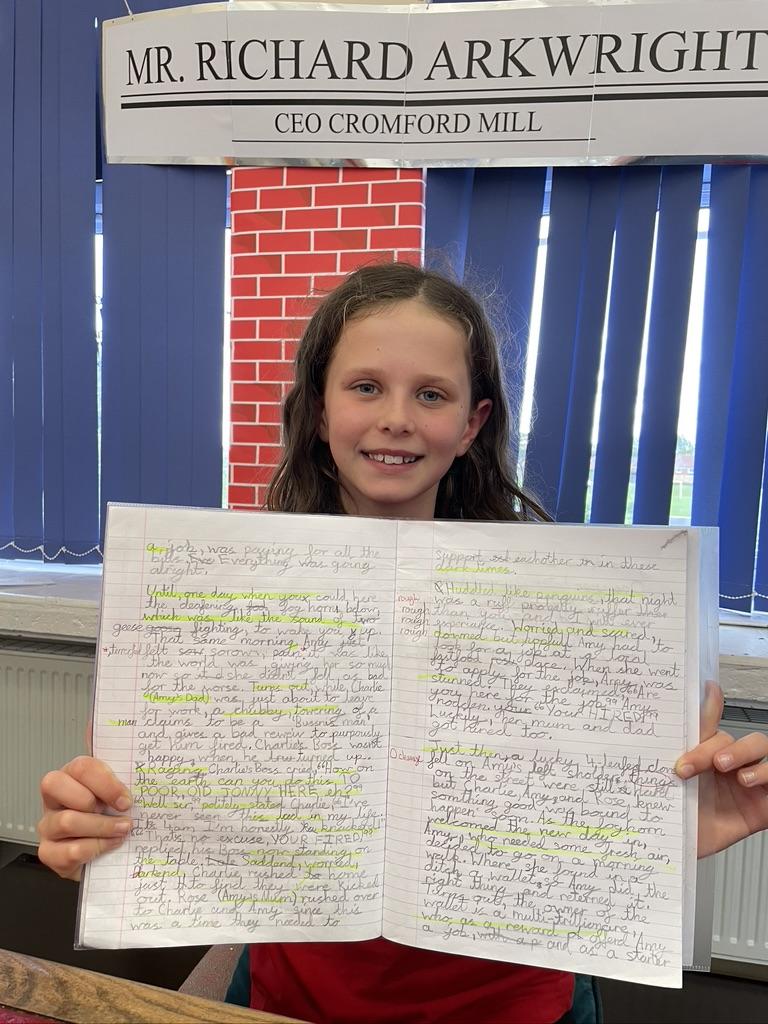 MR. RICHARD ARKWRIGHT
CEO CROMFORD MILL
a job, was paying for all the
bills, Eve Everything was going
alright.
Until, one day when youx could here
the deafening, fog horn, below,
which was like the sound of two
geese fighting, to wake you up.
That same morning Amy just
felt sorown, pain, it was like
the world was giving her so much
now so it she didn't fell as bad
for the worse. Turns out, while, Charlie
(Amy's Dad) was just about to leave
for work, a chubby, towering, of a
man claims to be a "Busnis man,"
and gives a bad reveiw to purposly
get him fired. Charlie's Boss wasnt
happy, when he turned up.
Raging Charlie's boss cried "How on
the earth, can you do this TO
POOR, OLD JONNY HERE, eh?"
"Well sir," politely stated Charlie, "I've
never seen this just in my life.
It's 4am I'm honestly knackerd"
"Thats no excuse, YOUR FIRED!"
replied his Boss now standing on
the table. Late Saddend, worried,
Charlie rushed to home
just to find they were kicked
out. Rose (Amy's Mum) rushed over
to Charlie and Amy since this
was a time they needed to
support eachother in in these
dark times.
Huddled like penguins, that night
rough was a ruff probally ruffer then
rough then you and I will ever
rough experiance. Worried and scared,
rough downed but hopefull Amy had to
look for a job at a local
place. When she went
to apply for the job, Amy was
stunned. They exclaimed "Are
you here for the job?" Amy
nodden, your "Your HIRED!"
Luckily, her mum and dad
got hired too.
Just then, a Lucky, 4 leafed clover
fell on Amy's left sholder, things
on the street were still hard
but Charlie, Amy, and Rose, knew
somthing good was bound to
happen soon. As the fog horn
welcomed the new day in,
Amy, who needed some fresh air,
decided to go on a morning
walk. Where she found in a
ditch a wallet, so Amy did the
right thing and returned it.
Turns out, the owner of the
wallet is a multi-trillionaire
who as a reward offerd Amy
a job, and as a starter